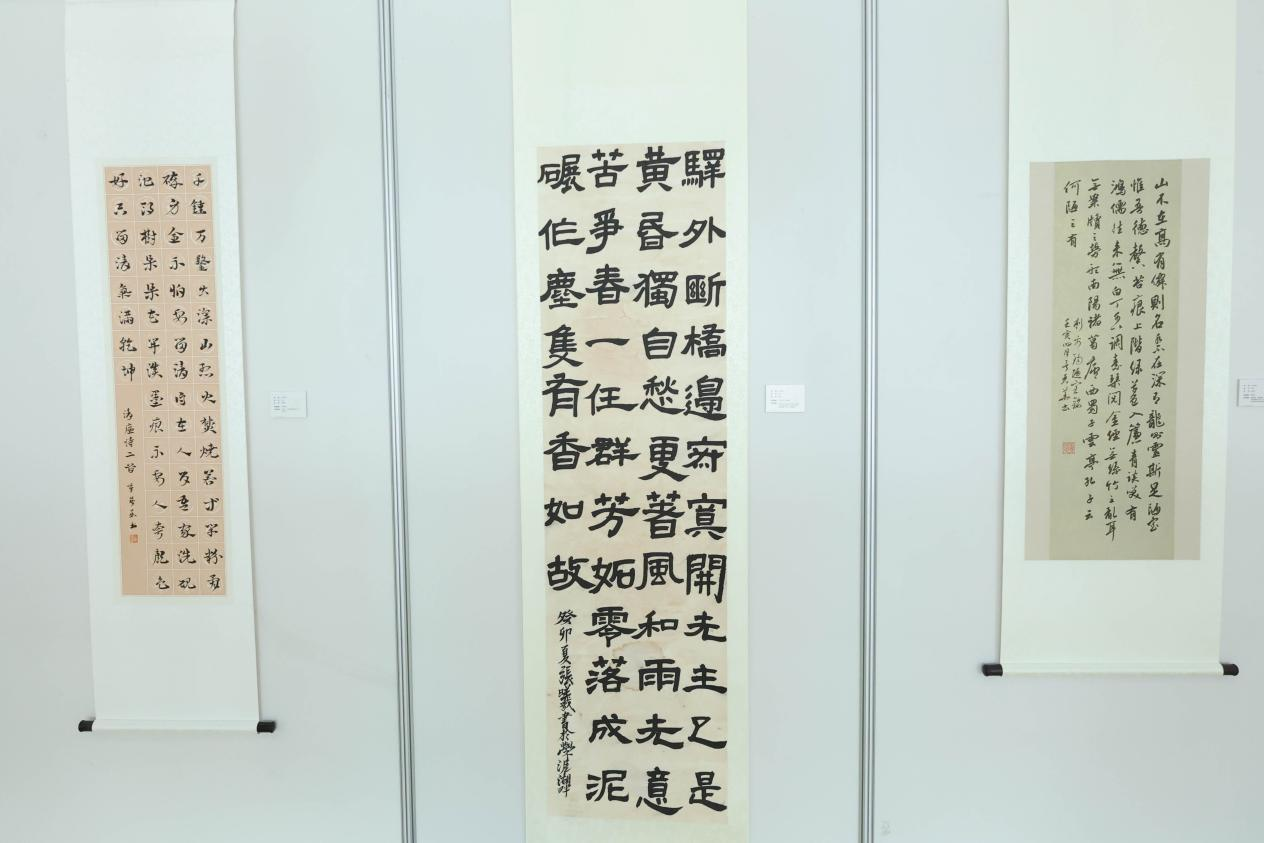 千錘万鑿出深山烈火焚燒若等闲粉骨
碎身全不怕要留清白在人间吾家洗砚
池頭樹朵朵花開淡墨痕不要人夸顏色
好只留清氣滿乾坤
清廉詩二首
驛外斷橋邊寂寞開无主已是
黃昏獨自愁更著風和雨无意
苦爭春一任群芳妬零落成泥
碾作塵隻有香如故
癸卯夏張曦書於學涯湖畔
山不在高有僊則名水不在深有龍必靈斯是陋室
惟吾德馨苔痕上階绿草色入簾青談笑有
鴻儒往來無白丁可以調素琴閱金經無絲竹之亂耳
無案牘之勞形南陽諸葛廬西蜀子雲亭孔子云
何陋之有
劉禹錫陋室銘
壬寅四月